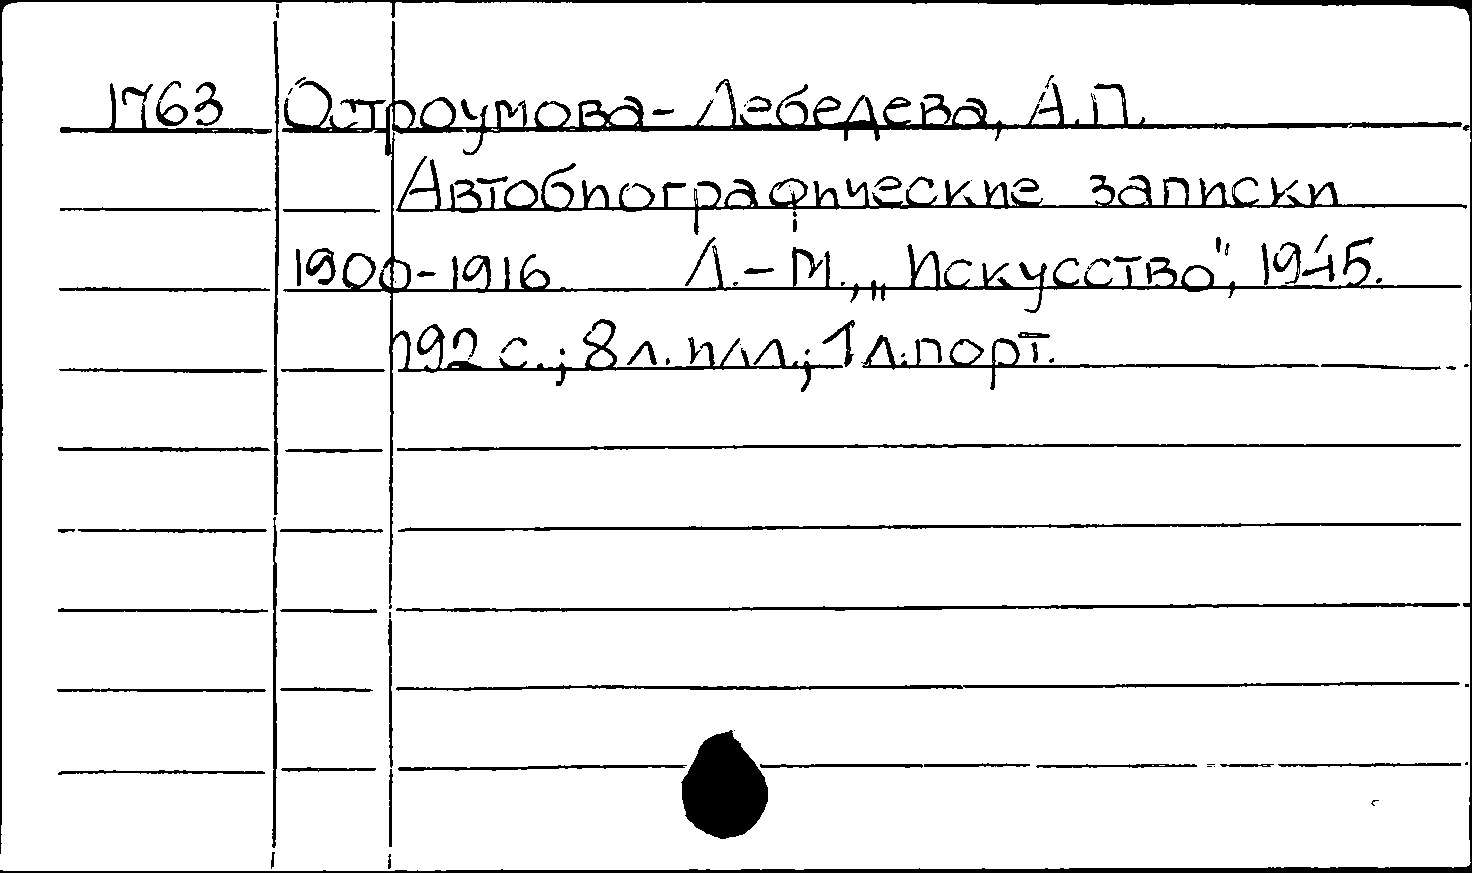 1763 Остроумова-Лебедева, А.П.
Автобиографические записки
1900-1916 Л.-М., „Искусство", 1945.
192 с.; 8 л. илл.; 1 л. порт.